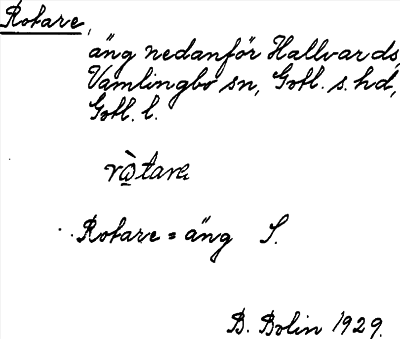 Rotare,
äng nedanför Hallvards,
Vamlingbo sn, Gotl. s. hd,
Gotl. l.
Rotare = äng S.
B. Bolin 1929.